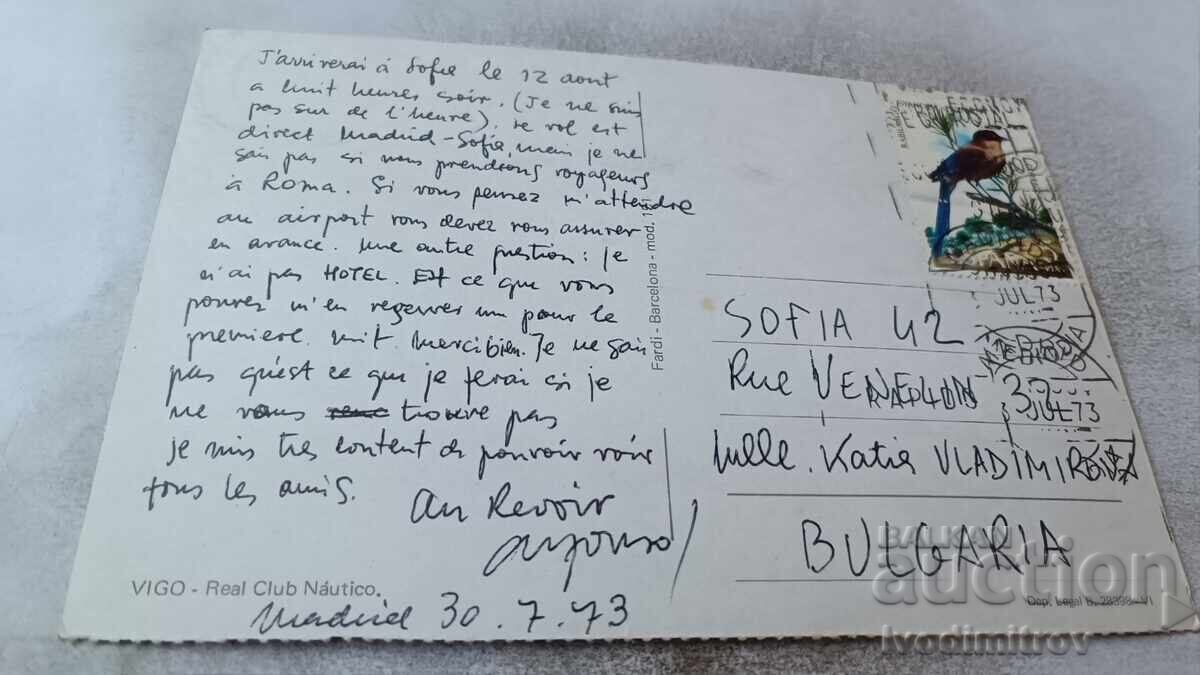 J'arriverai à Sofie le 12 aout
a huit heures soir. (Je ne suis
pas sur de l'heure), te vol est
direct Madrid-Sofie, mais je ne
sais pas si nous prendrons voyageurs
à Roma. Si vous pensez m'attendre
au airport vous devez vous assurer
en avance. Une autre question: Je
n'ai pas HOTEL. Est ce que vous
pouvez m'en reserver un pour le
premiere nuit. Merci bien. Je ne sais
pas qu'est ce que je ferai si je
ne vous trouve pas
Je suis tres content de pouvoir voir
tous les amis.
Au Revoir
VIGO - Real Club Náutico.
Madrid 30.7.73
Fardi - Barcelona - mod.
AZULEJO
JUL 73
JUL 73
SOFIA 42
Rue
Mlle. Katia VLADIMIROVA
BULGARIA
Dep. Legal B. 28398-VI
BALKAN
auction
Ivodimitrov